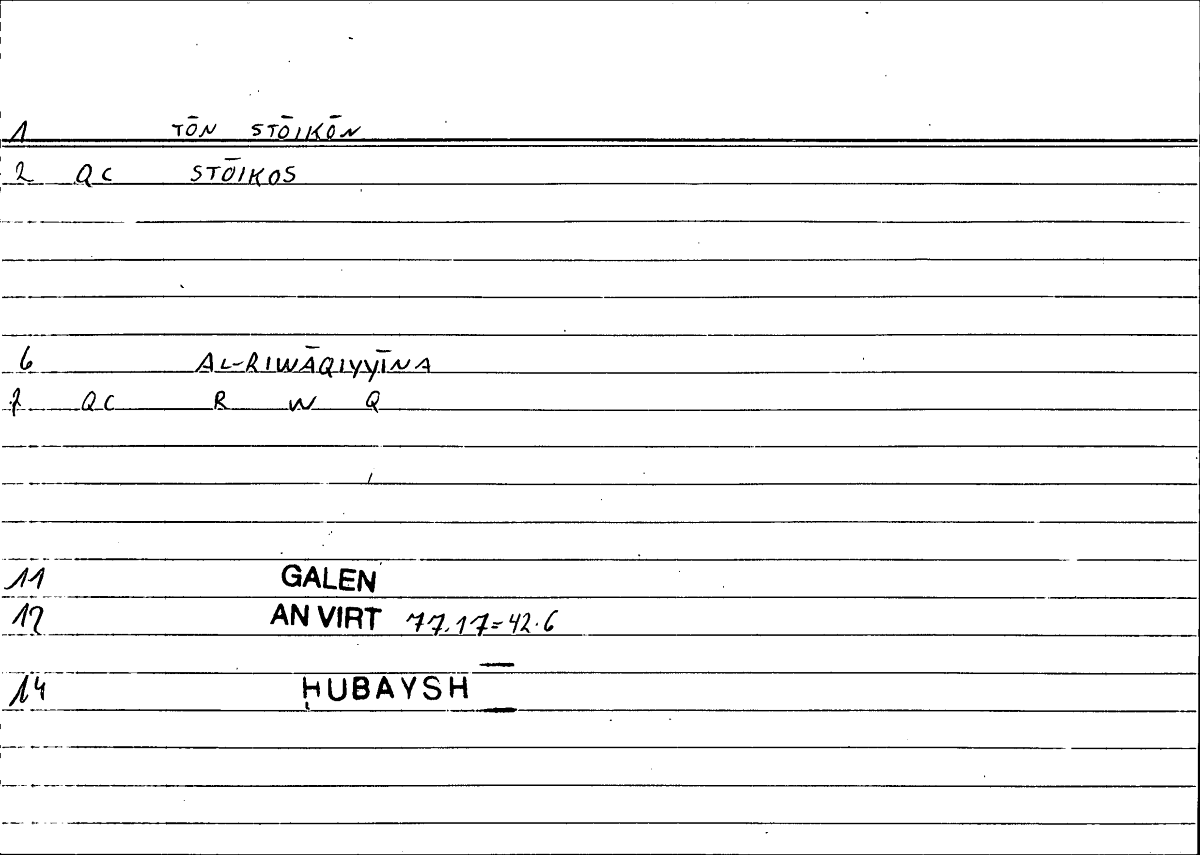 1 TŌN STŌIKŌN
2 QC STŌIKOS
6 AL-RIWĀQIYYĪNA
7 QC R W Q
11 GALEN
12 AN VIRT 77.17=42.6
14 ḤUBAYSH